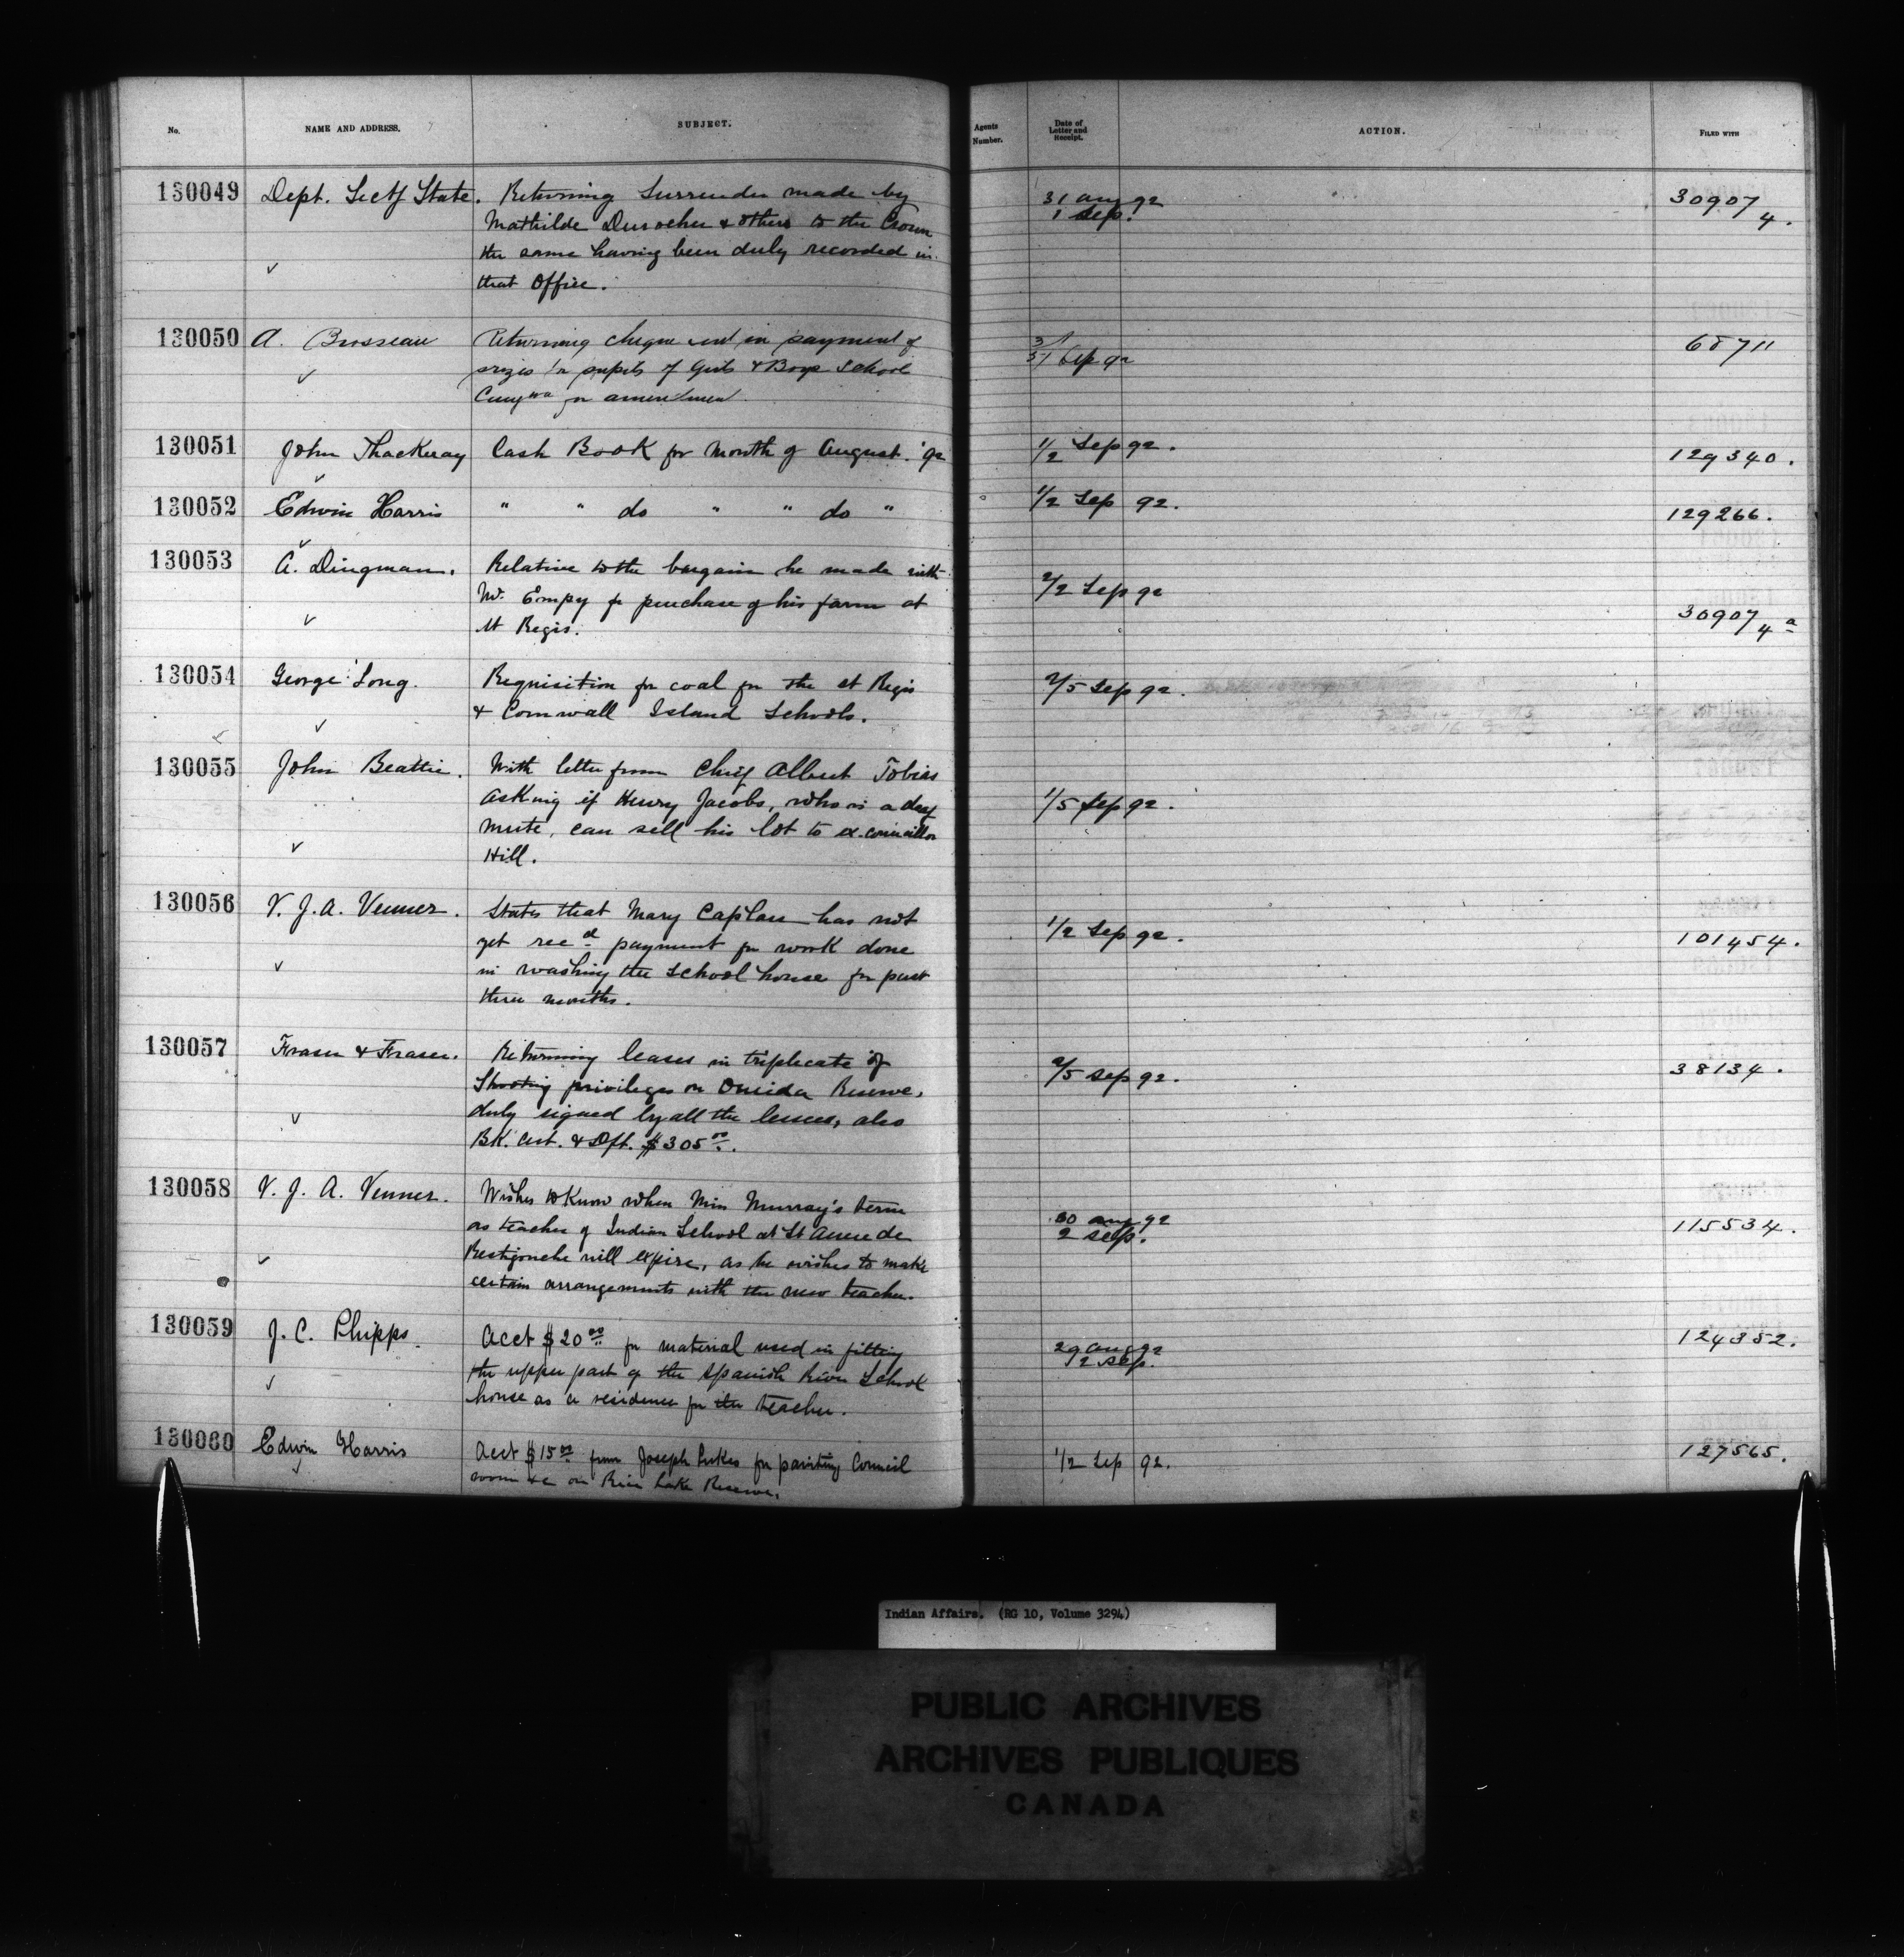 No. NAME AND ADDRESS. SUBJECT. Agents Number. Date of Letter and Receipt. ACTION. FILED WITH
130049 Dept. Secty State. Returning Surrender made by 31 aug 92 30907/4.
Mathilde Durocher & others to the Crown 1 Sep.
the same having been duly recorded in
that Office.
130050 A. Brosseau Returning cheque in payment of Sep 92 68711
prizes for pupils of Girls & Boys School
Caugwa for amendment
130051 John Thackeray Cash Book for Month of August. '92 1/2 Sep 92. 129340.
130052 Edwin Harris " " do " " do " 1/2 Sep 92. 129266.
130053 A. Dingman. Relative to the bargain he made with 2/2 Sep 92 30907/4a
Mr. Empy for purchase of his farm at
St Regis.
130054 George Long. Requisition for coal for the St Regis 2/5 Sep 92.
& Cornwall Island Schools.
130055 John Beattie. With letter from Chief Albert Tobias 1/5 Sep 92.
asking if Henry Jacobs, who is a deaf
mute, can sell his lot to ex.councillor
Hill.
130056 V. J. A. Venner. States that Mary Caplan has not 1/2 Sep 92. 101454.
yet recd payment for work done
in washing the School house for past
three months.
130057 Fraser & Fraser. Returning leases in triplicate of 2/5 Sep 92. 38134.
Shooting privileges on Oneida Reserve,
duly signed by all the lessees, also
Bk. Cert. & Dft. $305.00.
130058 V. J. A. Venner. Wishes to know when Miss Murray's term 30 aug 92 115534.
as teacher of Indian School at St Anne de 2 Sep.
Restigouche will expire, as he wishes to make
certain arrangements with the new teacher.
130059 J. C. Phipps. Acct $20.00 for material used in fitting 29 aug 92 124352.
the upper part of the Spanish River School 2 Sep.
house as a residence for the teacher.
130060 Edwin Harris Acct $15.00 from Joseph Lukes for painting Council 1/2 Sep 92. 127565.
room &c on Rice Lake Reserve.
Indian Affairs. (RG 10, Volume 3294)
PUBLIC ARCHIVES
ARCHIVES PUBLIQUES
CANADA